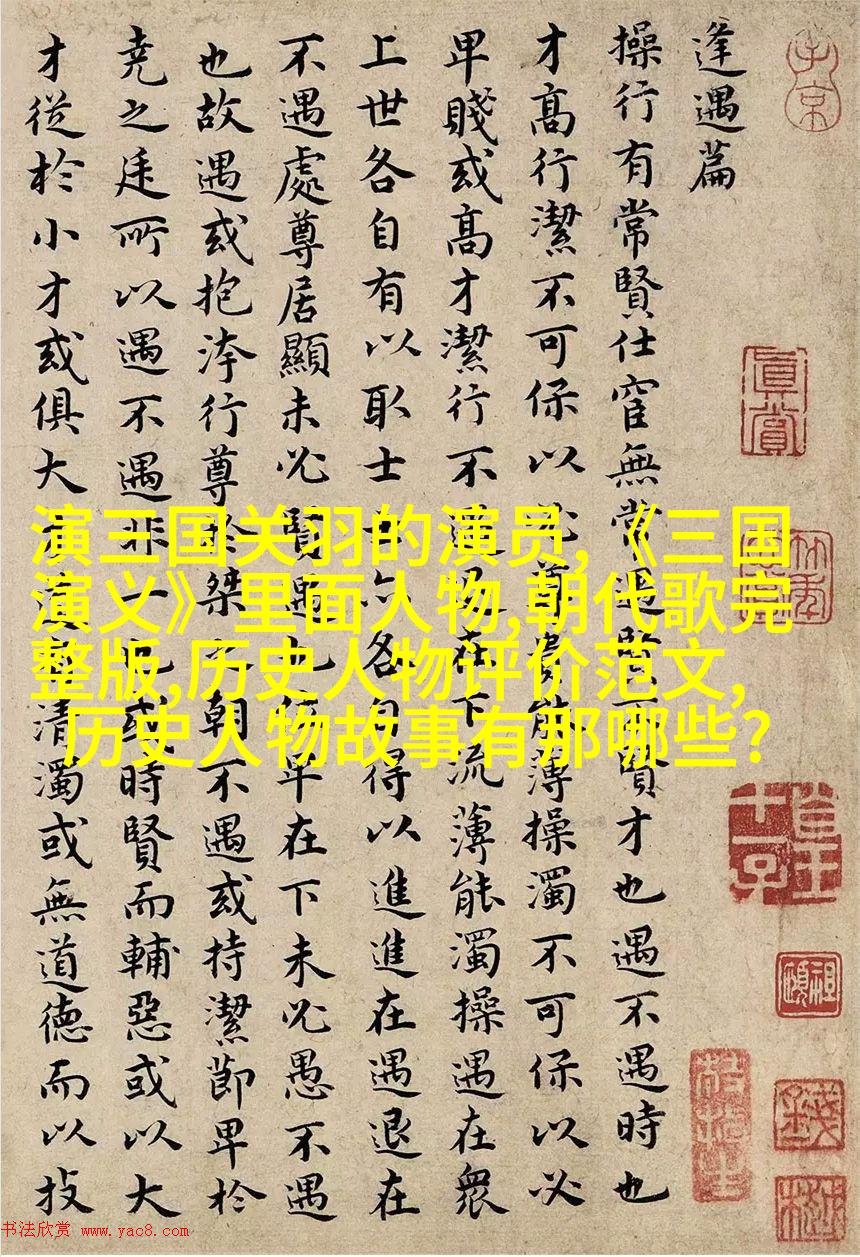 逢遇篇
操行有常賢仕宦無常遇賢不賢才也遇不遇時也
才高行潔不可保以必尊貴能薄操濁不可保以必
卑賤或高才潔行不遇退在下流薄能濁操遇在衆
上世各自有以取士士亦各自得以進進在遇退在
不遇處尊居顯未必賢遇也位卑在下未必愚不遇
也故遇或抱洿行尊於桀之朝不遇或持潔節卑於
堯之廷所以遇不遇非一也或時賢而輔惡或以大
才從於小才或俱大才道有清濁或無道德而以技
子京
真賞
演三国关羽的演员,《三国
演义》里面人物,朝代歌完
整版,历史人物评价范文,
历史人物故事有那哪些?
书法欣赏 www.yac8.com